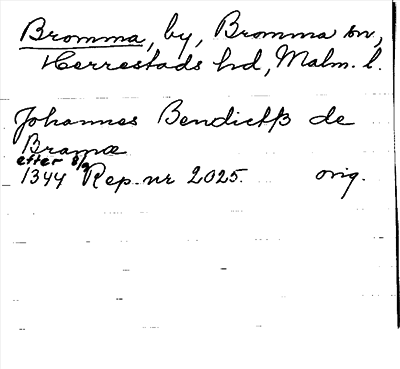 Bromma, by, Bromma sn,
Herrestads hd, Malm. l.
Johannes Bendictß de
Bramæ
efter 8/9
1344 Rep. nr 2025. orig.